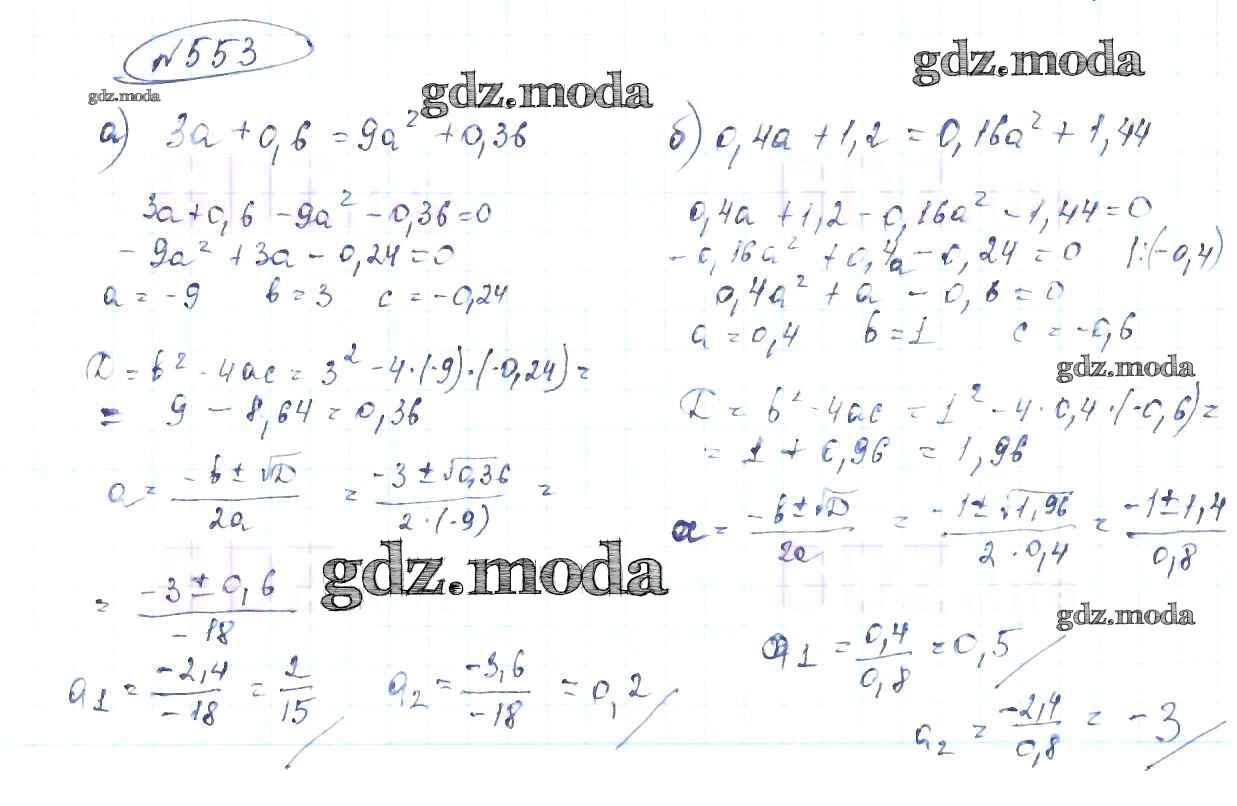 №553
gdz.moda
gdz.moda
gdz.moda
а) 3a + 0,6 = 9a² + 0,36
3a + 0,6 - 9a² - 0,36 = 0
- 9a² + 3a - 0,24 = 0
a = -9 b = 3 c = -0,24
D = b² - 4ac = 3² - 4·(-9)·(-0,24) =
= 9 - 8,64 = 0,36
a = (-b ± √D)/(2a) = (-3 ± √0,36)/(2·(-9)) =
gdz.moda
= (-3 ± 0,6)/(-18)
a₁ = (-2,4)/(-18) = 2/15 a₂ = (-3,6)/(-18) = 0,2
б) 0,4a + 1,2 = 0,16a² + 1,44
0,4a + 1,2 - 0,16a² - 1,44 = 0
- 0,16a² + 0,4a - 0,24 = 0 |:(-0,4)
0,4a² + a - 0,6 = 0
a = 0,4 b = 1 c = -0,6
gdz.moda
D = b² - 4ac = 1² - 4·0,4·(-0,6) =
= 1 + 0,96 = 1,96
a = (-b ± √D)/(2a) = (-1 ± √1,96)/(2·0,4) = (-1 ± 1,4)/(0,8)
gdz.moda
a₁ = 0,4/0,8 = 0,5
a₂ = (-2,4)/(0,8) = -3